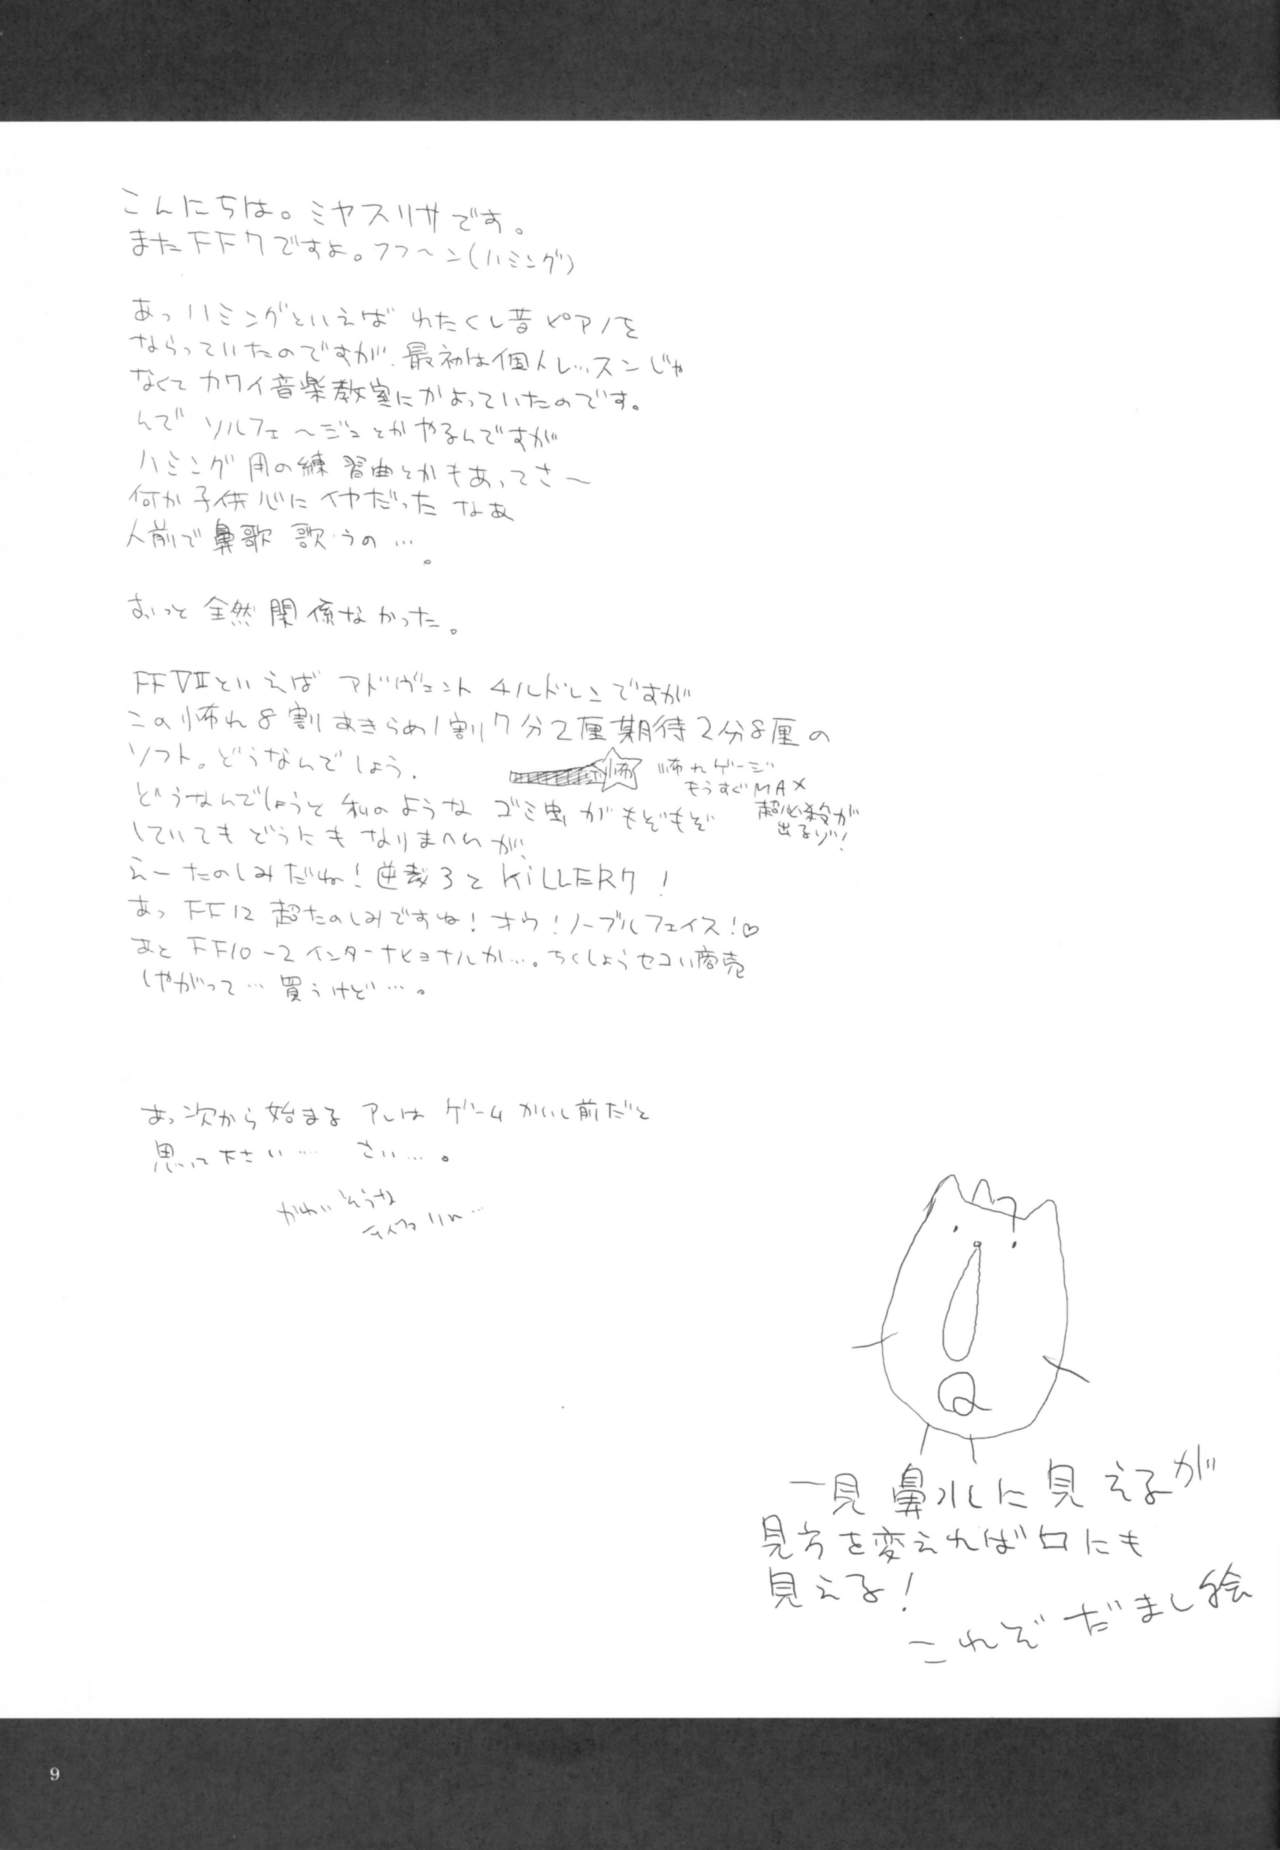 こんにちは。ミヤスリサです。
またFF7ですよ。フフ〜ン(ハミング)
あっハミングといえば わたくし昔ピアノを
ならっていたのですが、最初は個人レッスンじゃ
なくて カワイ音楽教室にかよっていたのです。
んで ソルフェ〜ジュとかやるんですが
ハミング用の練習曲とかもあってさ〜
何か子供心にイヤだったなぁ
人前で鼻歌 歌うの…。
ずいっと 全然関係なかった。
FFⅦといえば アドヴェントチルドレンですが
この怖れ8割あきらめ1割7分2厘期待2分8厘の
ソフト。どうなんでしょう。
怖 怖れゲージ
もうすぐMAX
超必殺が
出るゾ!
どうなんでしょうと 私のような ゴミ虫がもぞもぞ
していてもどうにもなりまへんが、
えーたのしみだね!逆裁3とKiLLER7!
あっ FF12 超たのしみですね!オウ!ノーブルフェイス!♡
あと FF10-2インターナショナルか…。ちくしょうセコい商売
しやがって…買うけど…。
あっ次から始まる アレは ゲームかいし前だと
思って下さい… さい…。
かわいそうな
ティファ
一見 鼻水に見えるが
見方を変えれば口にも
見える!
これぞだまし絵
9